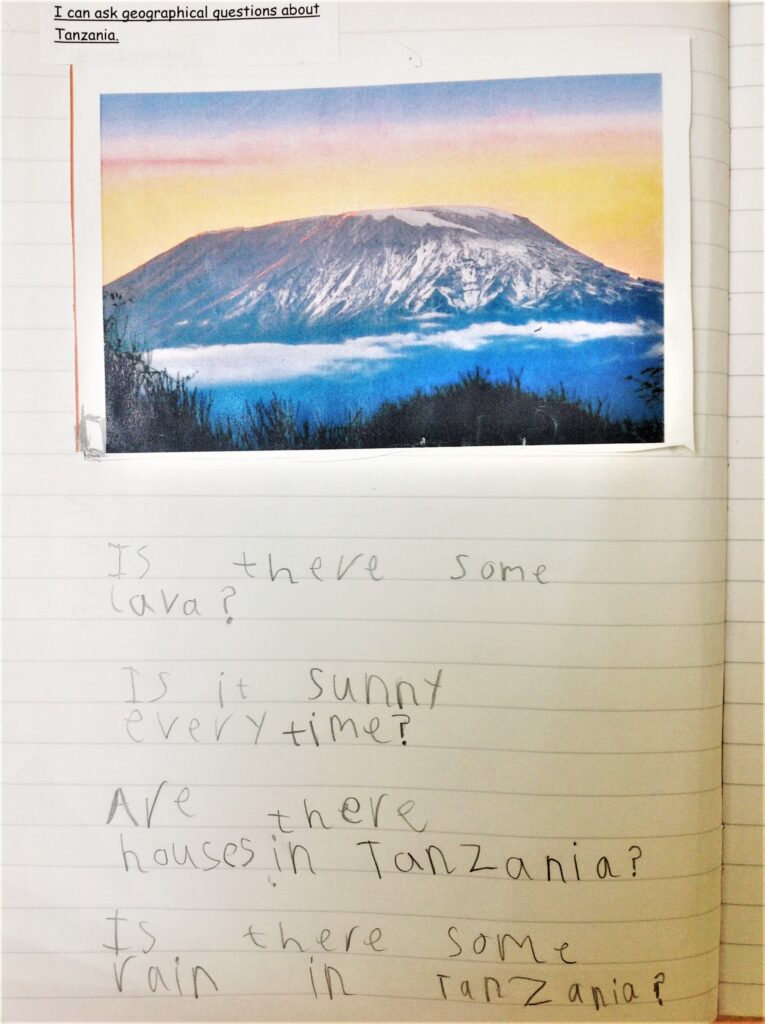 I can ask geographical questions about
Tanzania.
Is there some
lava?
Is it sunny
every time?
Are there
houses in Tanzania?
Is there some
rain in Tanzania?